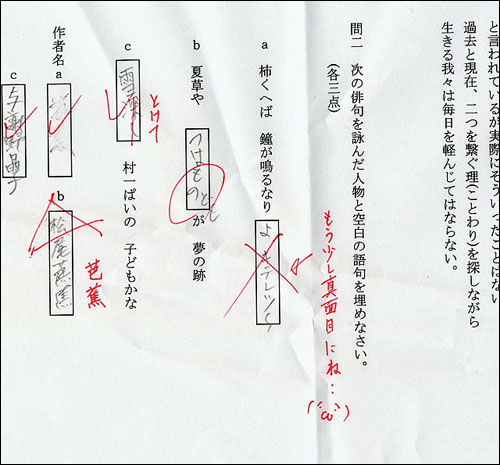 と言われているが実際にそういったことはない
過去と現在、二つを繋ぐ理(ことわり)を探しながら
生きる我々は毎日を軽んじてはならない。
問二 次の俳句を詠んだ人物と空白の語句を埋めなさい。
(各三点)
もう少し真面目にね…
a 柿くへば 鐘が鳴るなり
b 夏草や つはものども が 夢の跡
c 村一ぱいの 子どもかな
とけて
作者名
a
b 松尾芭蕉
芭蕉
c 与謝野晶子